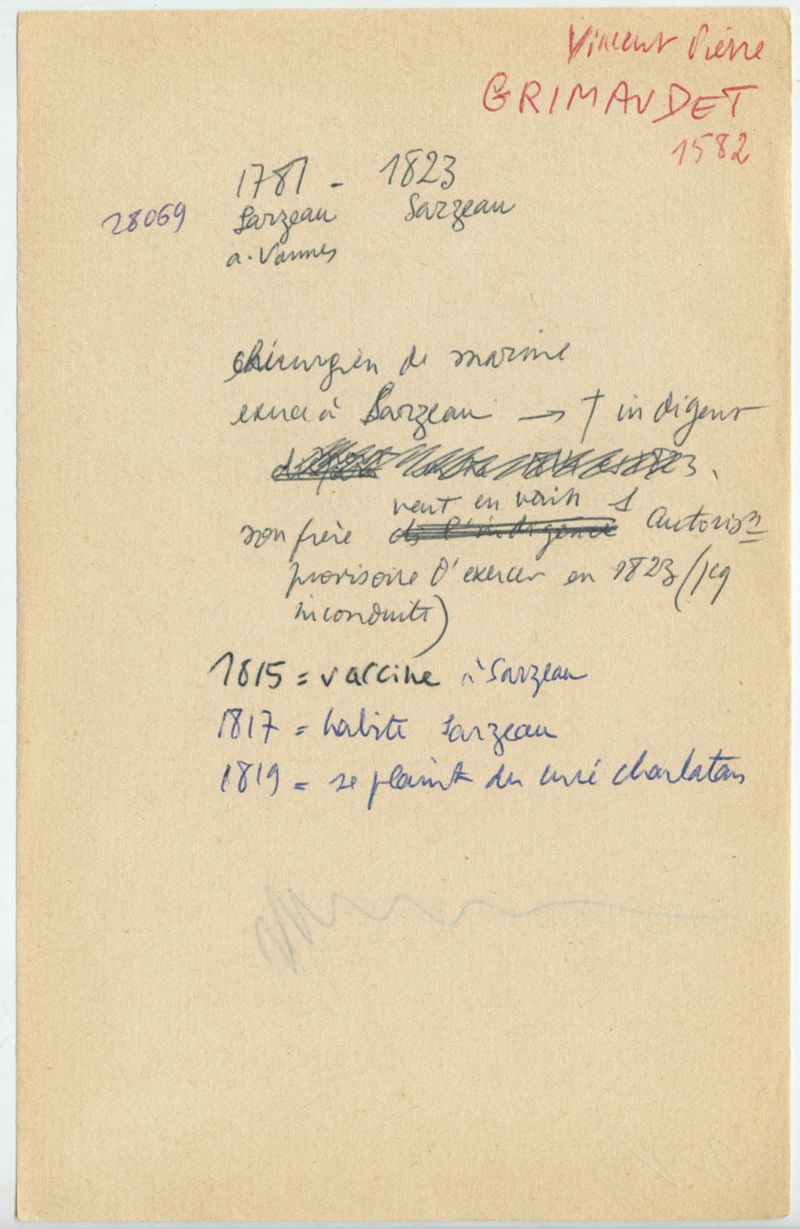 Vincent Pierre
GRIMAUDET
1582
1781 - 1823
28069 Sarzeau Sarzeau
a. Vannes
chirurgien de marine
exerce à Sarzeau → † indigent
veut en vain 1
son frère de l'indigence Autoris°n
provisoire d'exercer en 1823 (pq
inconduite)
1815 = vaccine à Sarzeau
1817 = habite Sarzeau
1819 = se plaint du curé charlatan